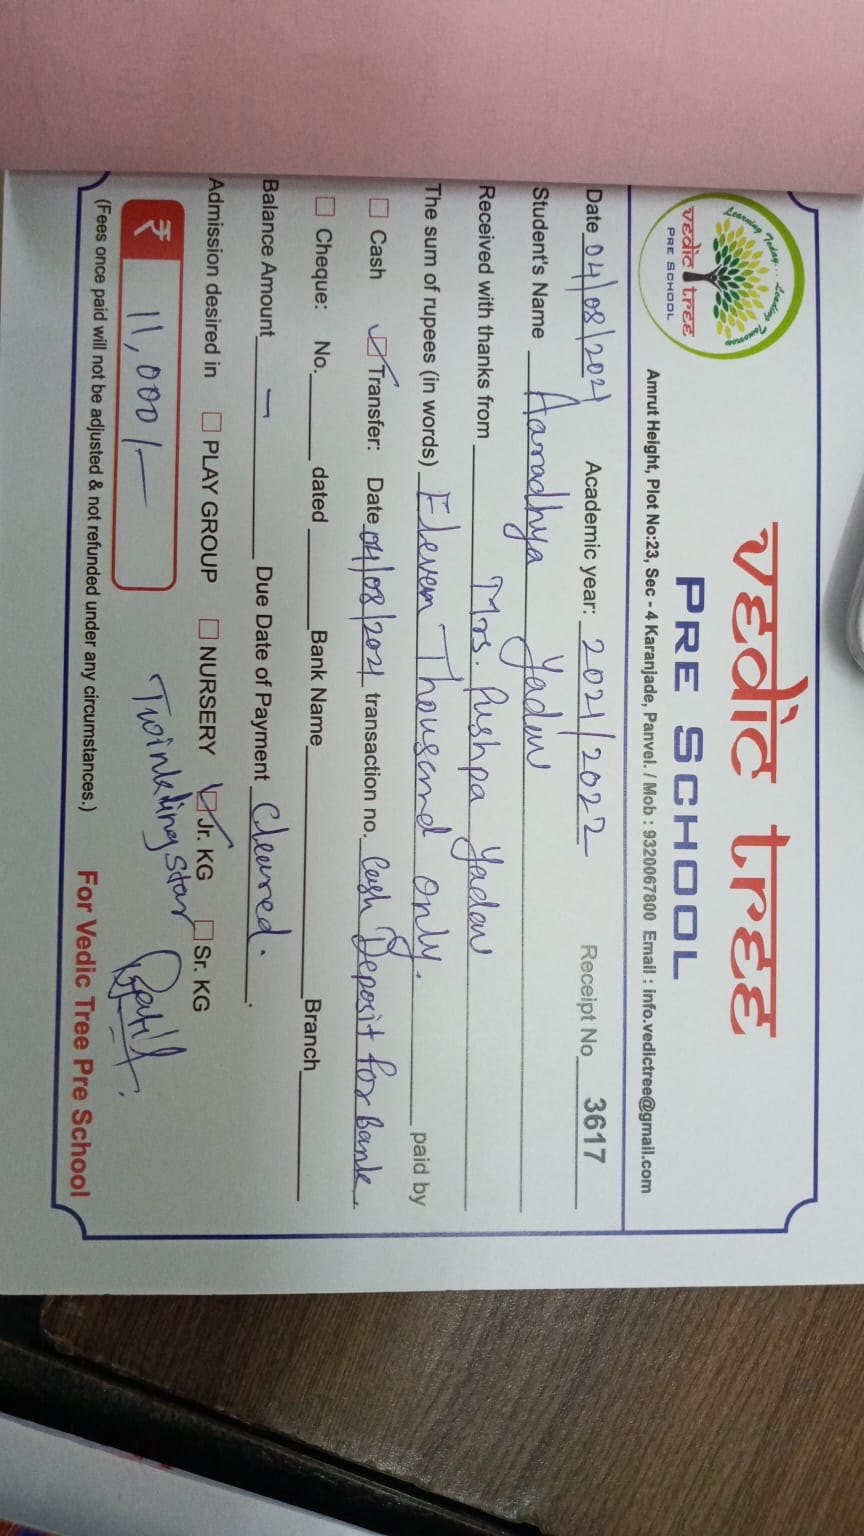 Learning Today... Leading Tomorrow
vedic tree
PRE SCHOOL
vedic tree
PRE SCHOOL
Amrut Height, Plot No:23, Sec - 4 Karanjade, Panvel. / Mob : 9320067800 Email : info.vedictree@gmail.com
Date 04/08/2021 Academic year: 2021/2022 Receipt No 3617
Student's Name Aaradhya Yadav
Received with thanks from Mrs. Pushpa Yadav
The sum of rupees (in words) Eleven Thousand only. paid by
Cash Transfer: Date 04/08/2021 transaction no. Cash Deposit for Bank.
Cheque: No. dated Bank Name Branch
Balance Amount - Due Date of Payment Cleared.
Admission desired in PLAY GROUP NURSERY Jr. KG Sr. KG
₹ 11,000/- Twinkling Star
(Fees once paid will not be adjusted & not refunded under any circumstances.) For Vedic Tree Pre School